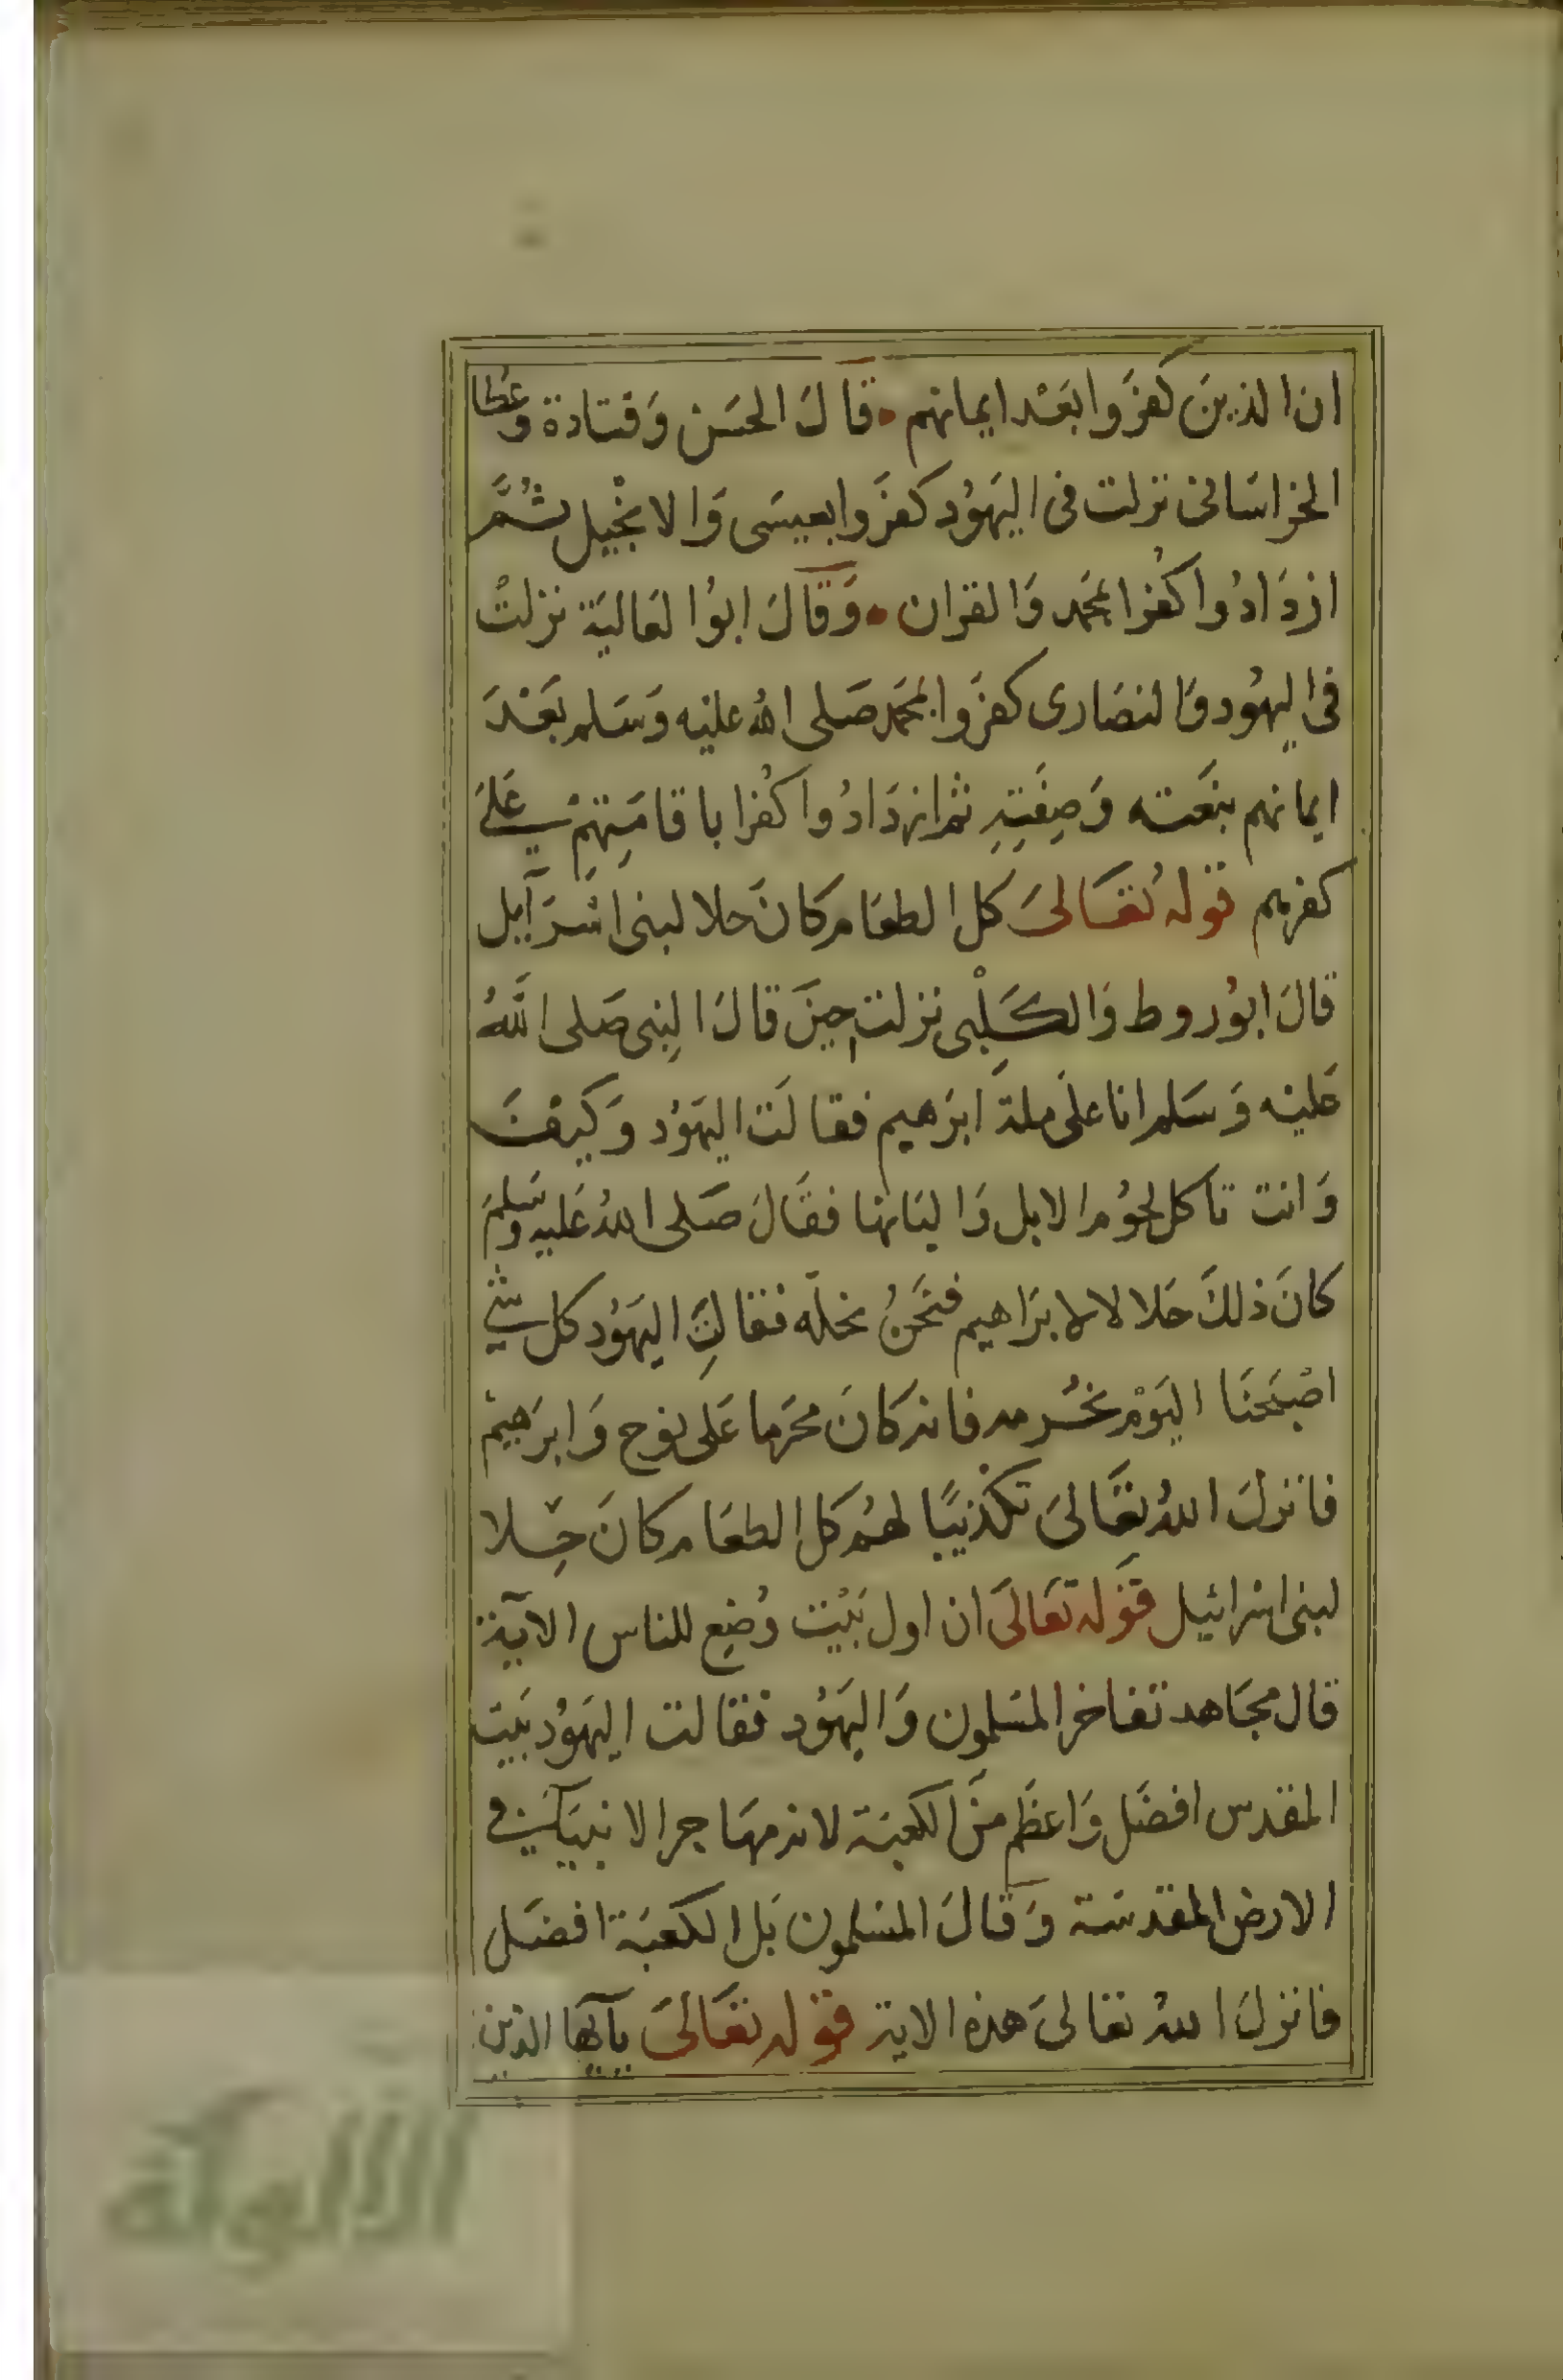 ان الذين كفروا بعد ايمانهم • قال الحسن وقتادة وعطا
الخراسانى نزلت فى اليهود كفروا بعيسى والانجيل ثم
ازدادوا كفرا بمحمد والقران • وقال ابوا لعالية نزلت
فى اليهود والنصارى كفروا بمحمد صلى الله عليه وسلم بعد
ايمانهم بنعته وصفته ثم ازدادوا كفرا باقامتهم على
كفرهم قوله تعالى كل الطعام كان حلا لبنى اسرآيل
قال ابوروط والكلبى نزلت حين قال النبى صلى الله
عليه وسلم انا على ملة ابرهيم فقالت اليهود وكيف
وانت تاكل لحوم الابل والبانها فقال صلى الله عليه وسلم
كان ذلك حلالا لابراهيم فنحن نحله فقالت اليهود كل شى
اصبحنا اليوم نحرمه فانه كان محرما على نوح وابرهيم
فانزل الله تعالى تكذيبا لهم كل الطعام كان حلا
لبنى اسرائيل قوله تعالى ان اول بيت وضع للناس الاية
قال مجاهد تفاخر المسلمون واليهود فقالت اليهود بيت
المقدس افضل واعظم من الكعبة لانه مهاجر الانبيآ فى
الارض المقدسة وقال المسلمون بل الكعبة افضل
فانزل الله تعالى هذه الاية قوله تعالى يآيها الذين
الألوكة